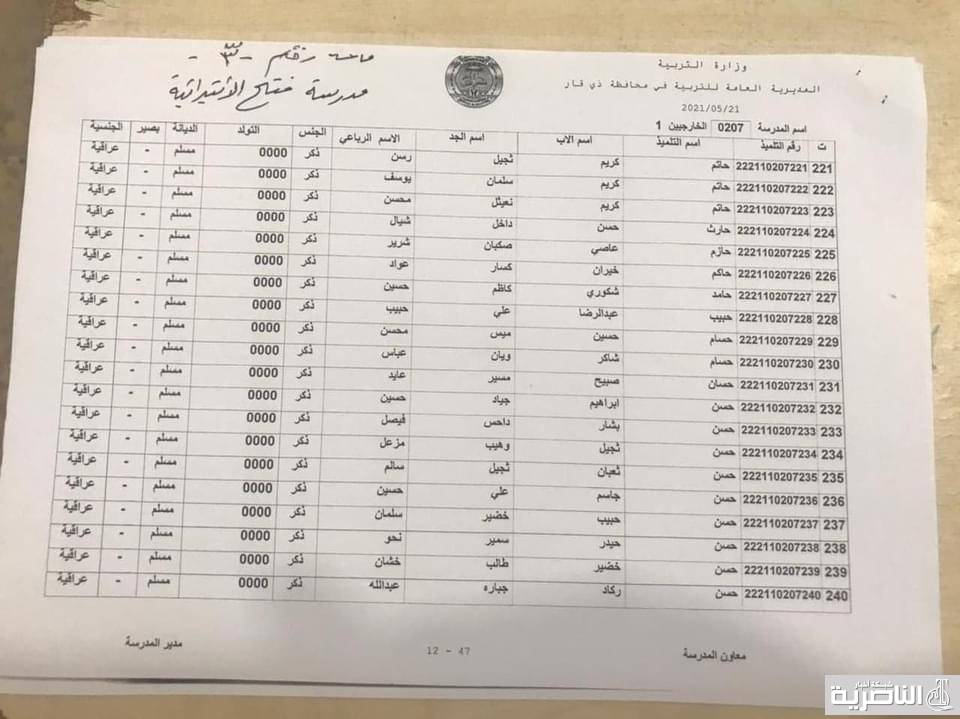 وزارة التربية
المديرية العامة للتربية في محافظة ذي قار
2021/05/21
مدرسة الأبتدائية
اسم المدرسة 0207 الخارجيين 1
ت رقم التلميذ اسم التلميذ اسم الاب اسم الجد الاسم الرباعي الجنس التولد الديانة بصير الجنسية
221 222110207221 حاتم كريم ثجيل رسن ذكر 0000 مسلم - عراقية
222 222110207222 حاتم كريم سلمان يوسف ذكر 0000 مسلم - عراقية
223 222110207223 حاتم كريم نعيثل محسن ذكر 0000 مسلم - عراقية
224 222110207224 حارث حسن داخل شيال ذكر 0000 مسلم - عراقية
225 222110207225 حازم عاصي صكبان شرير ذكر 0000 مسلم - عراقية
226 222110207226 حاكم خيران كسار عواد ذكر 0000 مسلم - عراقية
227 222110207227 حامد شكوري كاظم حسين ذكر 0000 مسلم - عراقية
228 222110207228 حبيب عبدالرضا علي حبيب ذكر 0000 مسلم - عراقية
229 222110207229 حسام حسين ميس محسن ذكر 0000 مسلم - عراقية
230 222110207230 حسام شاكر وبان عباس ذكر 0000 مسلم - عراقية
231 222110207231 حسان صبيح مسير عايد ذكر 0000 مسلم - عراقية
232 222110207232 حسن ابراهيم جياد حسين ذكر 0000 مسلم - عراقية
233 222110207233 حسن بشار داحس فيصل ذكر 0000 مسلم - عراقية
234 222110207234 حسن ثجيل وهيب مزعل ذكر 0000 مسلم - عراقية
235 222110207235 حسن ثعبان ثجيل سالم ذكر 0000 مسلم - عراقية
236 222110207236 حسن جاسم علي حسين ذكر 0000 مسلم - عراقية
237 222110207237 حسن حبيب خضير سلمان ذكر 0000 مسلم - عراقية
238 222110207238 حسن حيدر سمير نحو ذكر 0000 مسلم - عراقية
239 222110207239 حسن خضير طالب خشان ذكر 0000 مسلم - عراقية
240 222110207240 حسن ركاد جباره عبدالله ذكر 0000 مسلم - عراقية
معاون المدرسة 12 - 47 مدير المدرسة
شبكة أخبار
الناصرية